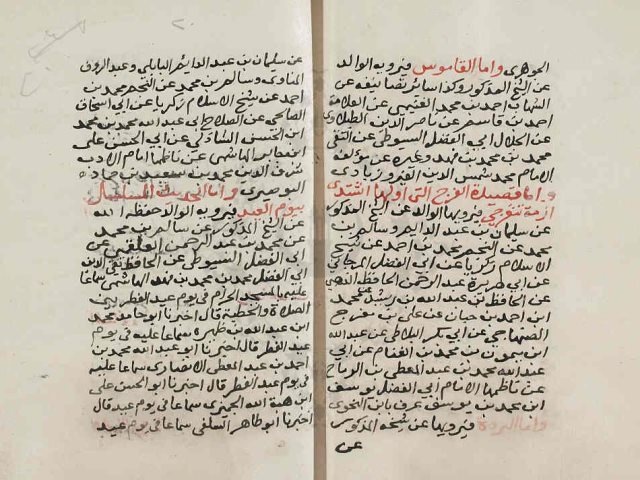 الجوهري واما القاموس فيرويه الوالد
عن الشيخ المذكور وكذا سائر تصانيفه عن
الشهاب احمد بن محمد الغنيمي عن العلامة
احمد بن قاسم عن ناصر الدين الطبلاوي
عن الجلال ابي الفضل السيوطي عن التقي
محمد بن محمد بن فهد وغيره عن مؤلفه
الامام محمد شمس الدين الفيروزبادي
واما قصيدة الفرج التي اولها اشتدي
ازمة تنفرجي فيرويها الوالد عن الشيخ المذكور
عن سليمان بن عبد الدايم وسالم بن
محمد عن النجم محمد بن احمد عن شيخ
الاسلام زكريا عن ابي الفضل المرجاني
عن ابي هريرة عبد الرحمن الحافظ الذهبي
عن الحافظ بن عبد الله بن رشيد محمد
احمد بن حيان عن علي بن مفرج
الصنهاجي عن ابي بكر عن عبد الله
ابن ميمون بن محمد بن الغنام عن ابي
عبد الله محمد بن عبد المعطي بن الرماح
عن ناظمها الامام أبي الفضل يوسف
ابن محمد بن يوسف عرف بابن النحوي
واما البردة فيرويها عن شيخه المذكور
عن
٢٠
عن سلمان بن عبد الدايم البابلي وعبد الروف
المناوي وسالم بن محمد عن النجم محمد بن
احمد عن شيخ الاسلام زكريا عن ابي اسحاق
الصالحي عن الصلاح ابي عبد الله محمد بن محمد
ابن الحسن الشاذلي عن ابي الحسن علي
ابن جابر الهاشمي عن ناظمها امام الادب
شرف الدين محمد بن سعيد بن حماده
البوصيري واما الحديث المسلسل
بيوم العيد فيرويه الوالد حفظه الله
عن الشيخ المذكور عن سالم بن محمد
عن محمد بن عبد الرحمن العلقمي عن
ابي الفضل السيوطي عن الحافظ تقي الدين
ابي الفضل محمد بن محمد بن فهد الهاشمي سماعا
عليه بالمسجد الحرام في يوم عيد الفطر بين
الصلاة والخطبة قال اخبرنا ابو حامد محمد
ابن عبد الله بن ظهيرة سماعا عليه في يوم
عيد الفطر قال اخبرنا ابو عبد الله محمد بن
احمد بن عبد المعطي الانصاري سماعا عليه
في يوم عيد الفطر قال اخبرنا ابو الحسن علي
ابن هبة الله الجميزي سماعا في يوم عيد قال
اخبرنا ابو طاهر السلفي سماعا في يوم عيد